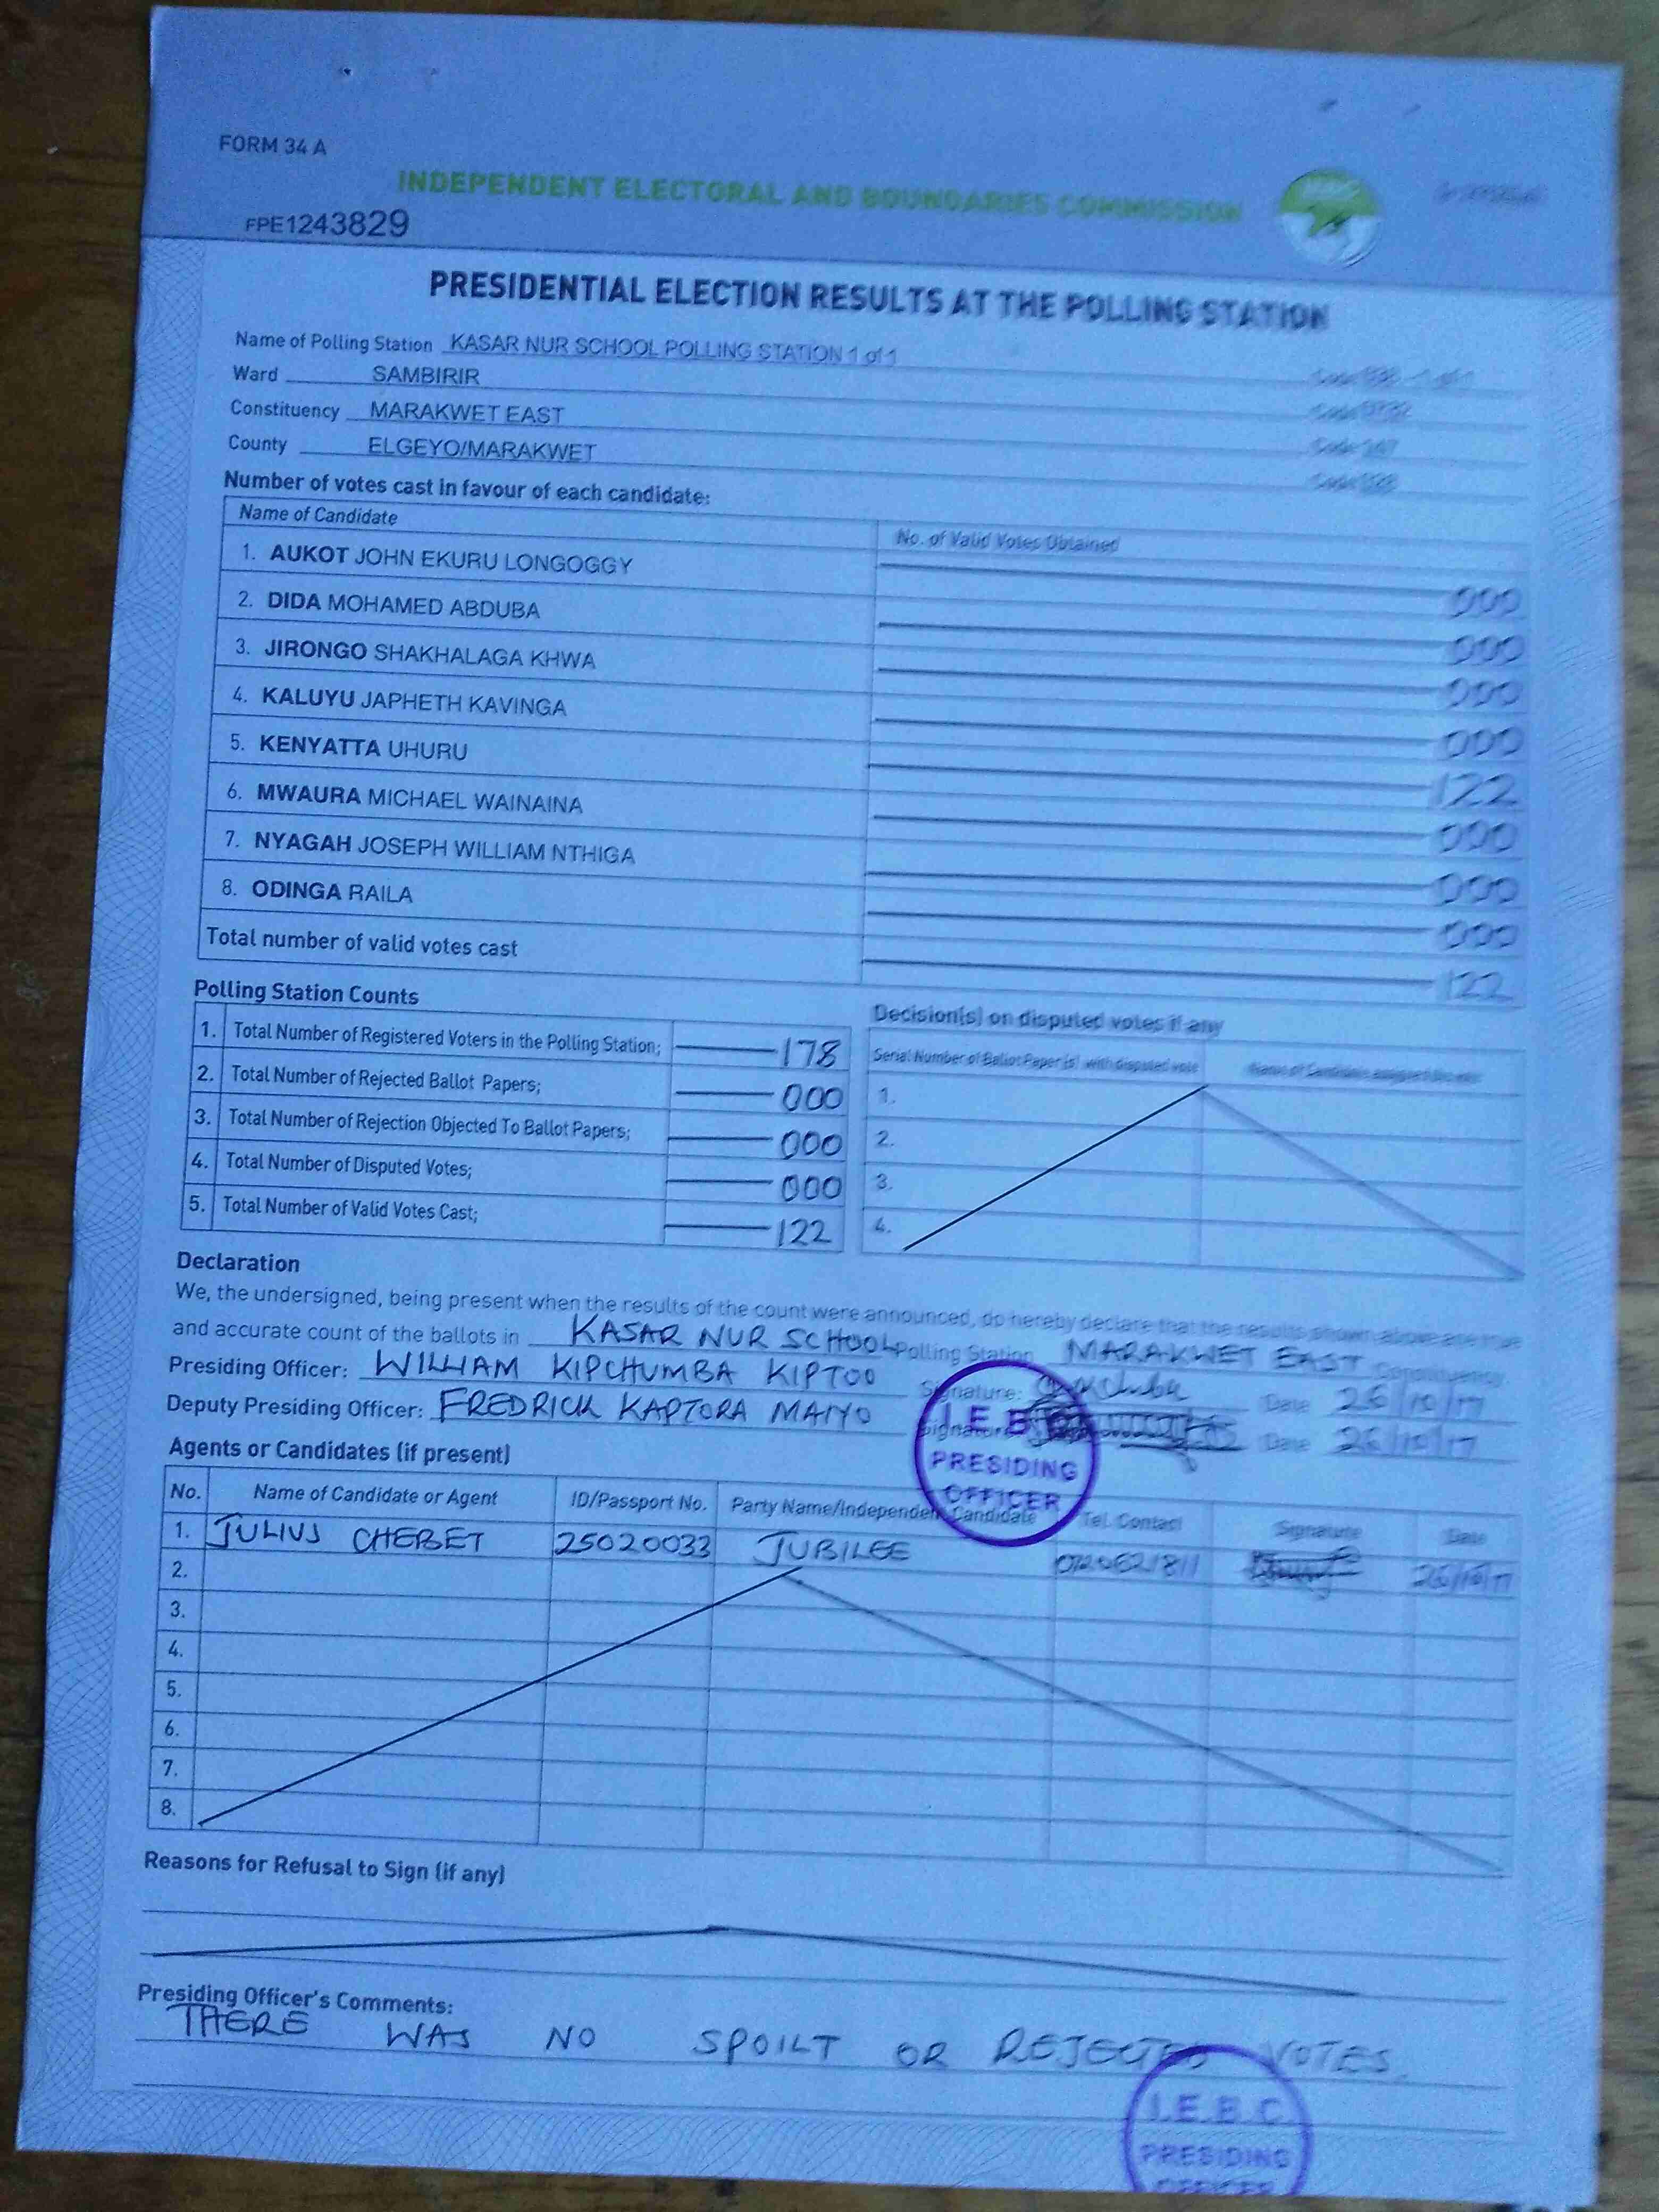 FORM 34 A
INDEPENDENT ELECTORAL AND BOUNDARIES COMMISSION
FPE1243829
PRESIDENTIAL ELECTION RESULTS AT THE POLLING STATION
Name of Polling Station KASAR NUR SCHOOL POLLING STATION 1 of 1
Ward SAMBIRIR
Constituency MARAKWET EAST
County ELGEYO/MARAKWET
Number of votes cast in favour of each candidate:
Name of Candidate No. of Valid Votes Obtained
1. AUKOT JOHN EKURU LONGOGGY 000
2. DIDA MOHAMED ABDUBA 000
3. JIRONGO SHAKHALAGA KHWA 000
4. KALUYU JAPHETH KAVINGA 000
5. KENYATTA UHURU 122
6. MWAURA MICHAEL WAINAINA 000
7. NYAGAH JOSEPH WILLIAM NTHIGA 000
8. ODINGA RAILA 000
Total number of valid votes cast 122
Polling Station Counts
1. Total Number of Registered Voters in the Polling Station; 178
2. Total Number of Rejected Ballot Papers; 000
3. Total Number of Rejection Objected To Ballot Papers; 000
4. Total Number of Disputed Votes; 000
5. Total Number of Valid Votes Cast; 122
Decision(s) on disputed votes if any
Serial Number of Ballot Paper (s) with disputed vote
1.
2.
3.
4.
Declaration
We, the undersigned, being present when the results of the count were announced, do hereby declare that the results shown above are true
and accurate count of the ballots in KASAR NUR SCHOOL Polling Station MARAKWET EAST Constituency.
Presiding Officer: WILLIAM KIPCHUMBA KIPTOO Signature: Date 26/10/17
Deputy Presiding Officer: FREDRICK KAPTORA MAIYO Signature: Date 26/10/17
I.E.B.C
PRESIDING
OFFICER
Agents or Candidates (if present)
No. Name of Candidate or Agent ID/Passport No. Party Name/Independent Candidate Tel. Contact Signature Date
1. JULIUS CHEBET 25020033 JUBILEE 26/10/17
2.
3.
4.
5.
6.
7.
8.
Reasons for Refusal to Sign (if any)
Presiding Officer's Comments:
THERE WAS NO SPOILT OR REJECTED VOTES.
I.E.B.C
PRESIDING
OFFICER